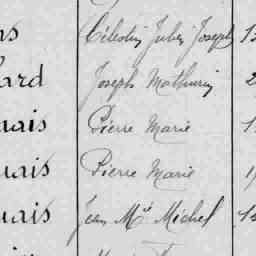 ns Célestin Jules Joseph 1
ard Joseph Mathurin 2
uais Pierre Marie 1
uais Pierre Marie
uais Jean Mie Michel 1